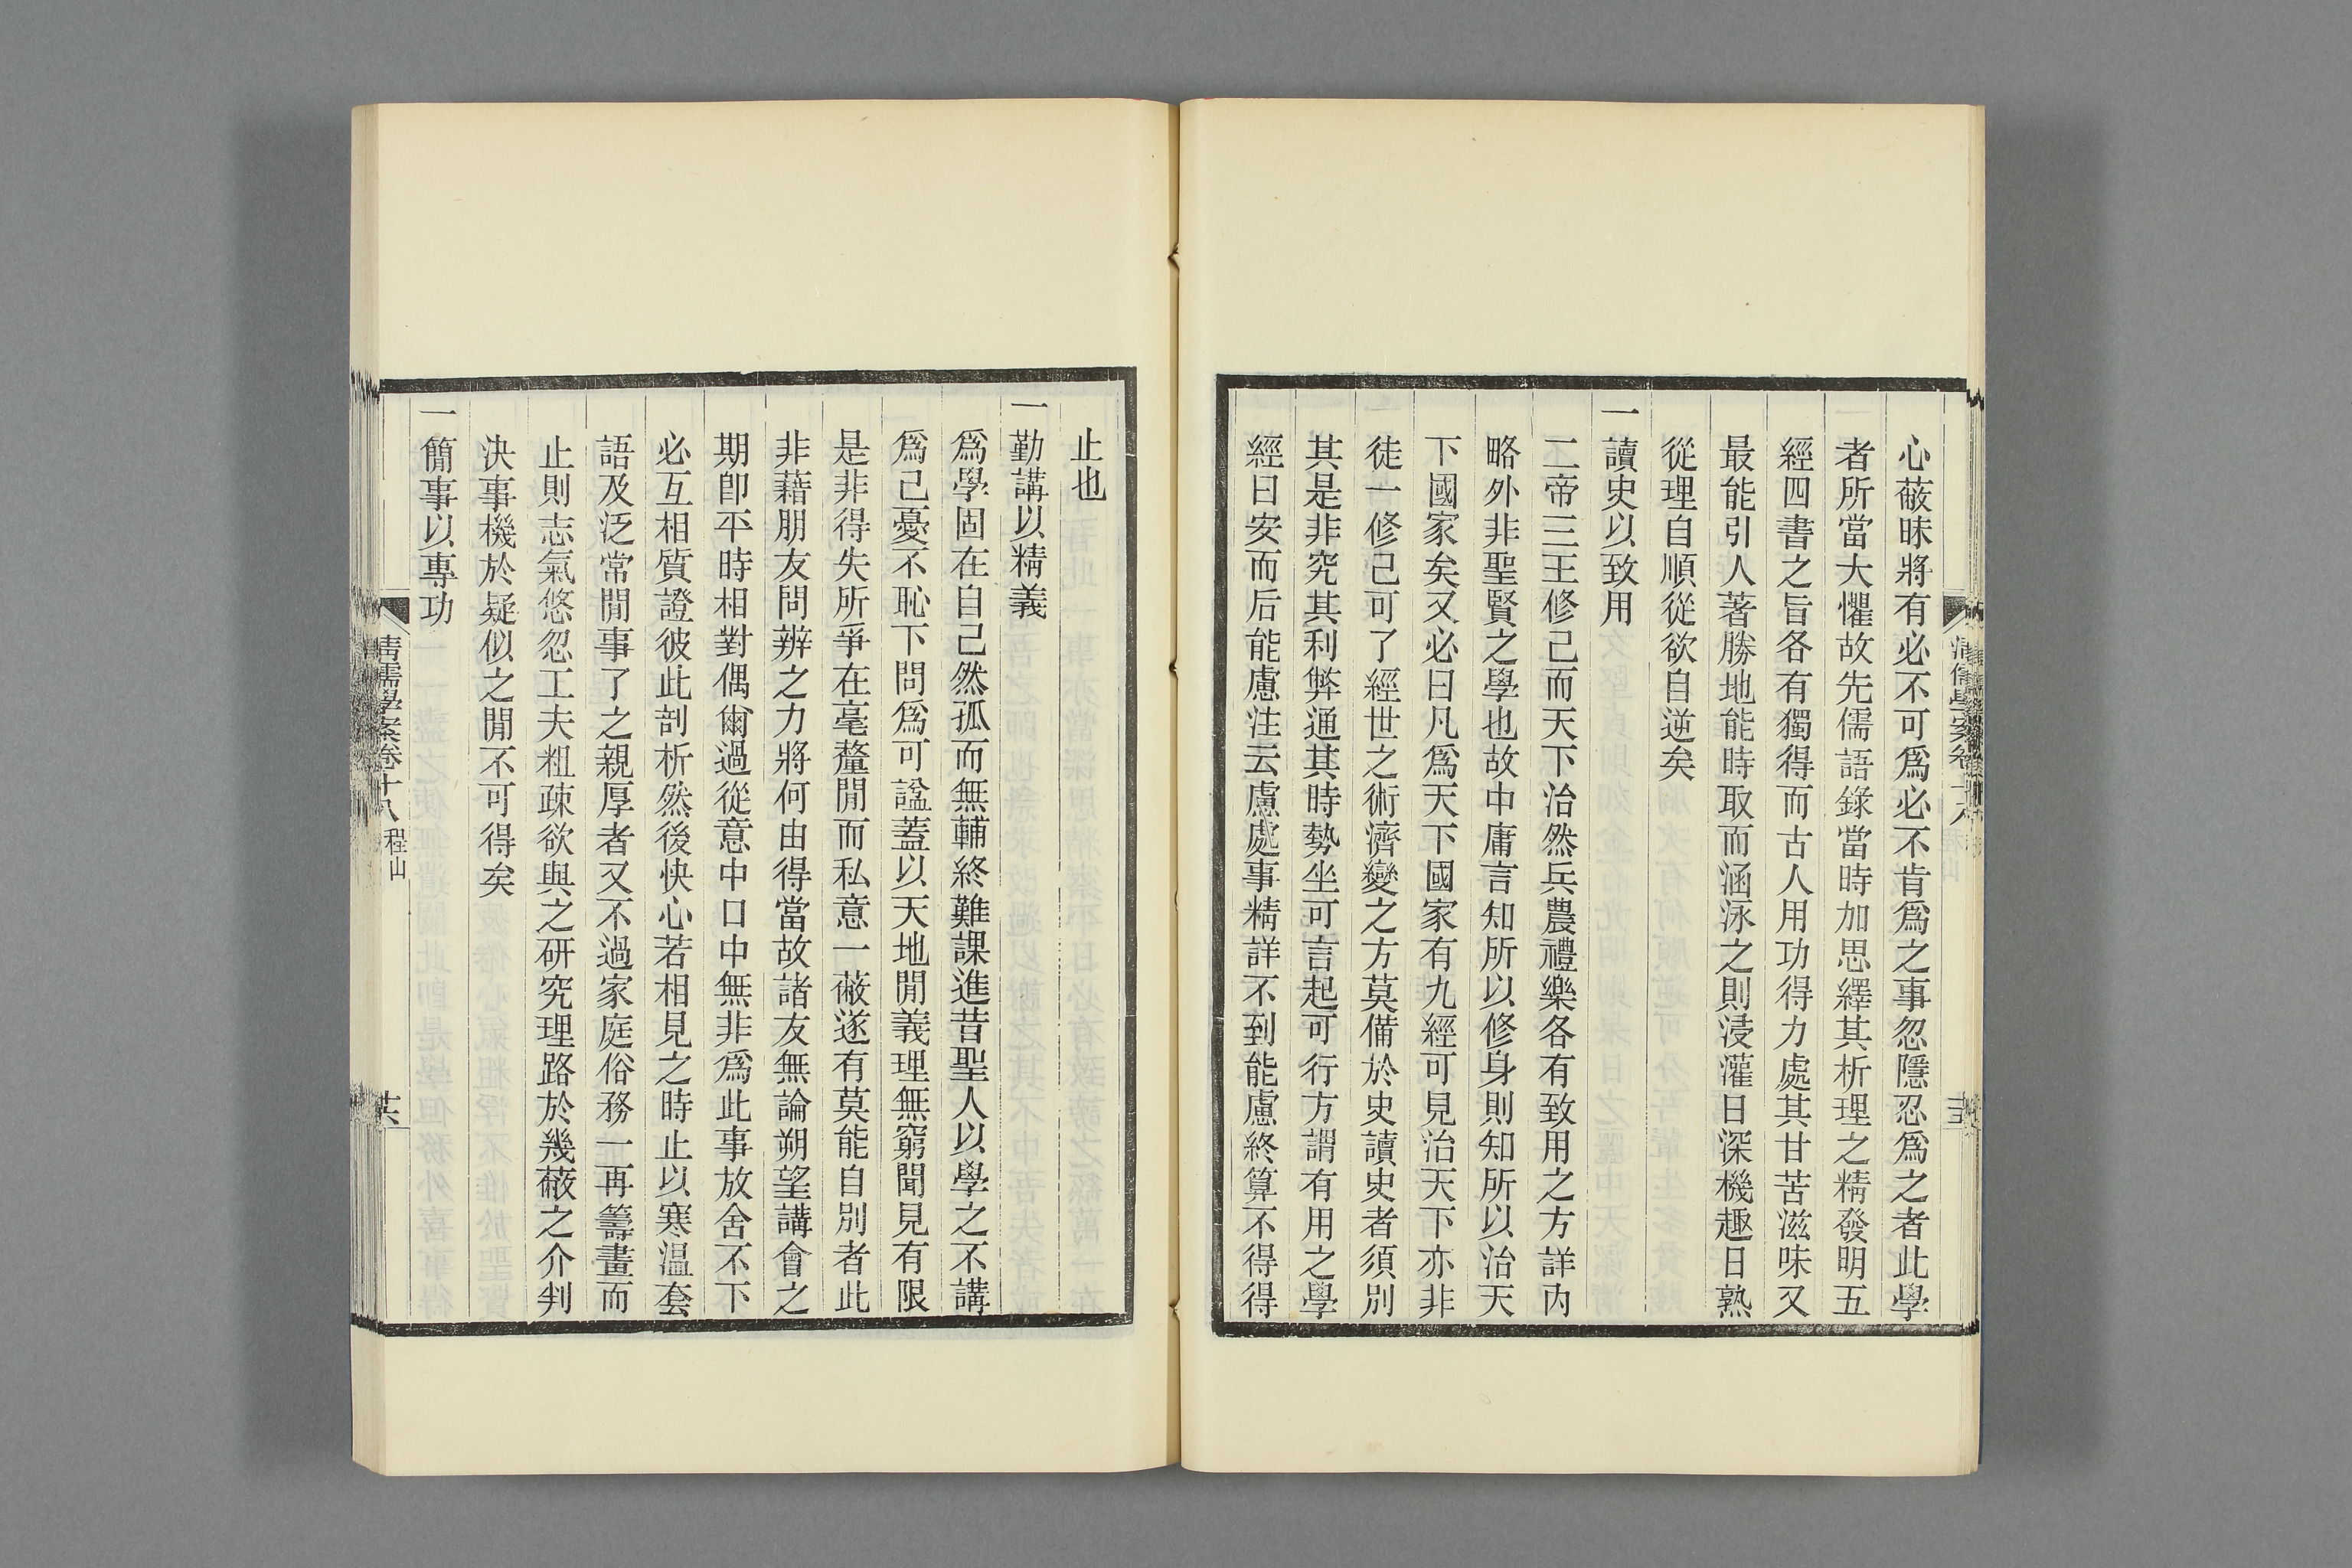 心蔽昧將有必不可爲必不肯爲之事忽隱忍爲之者此學
者所當大懼故先儒語錄當時加思繹其析理之精發明五
經四書之旨各有獨得而古人用功得力處其甘苦滋味又
最能引人著勝地能時取而涵泳之則浸灌日深機趣日熟
從理自順從欲自逆矣
一讀史以致用
二帝三王修己而天下治然兵農禮樂各有致用之方詳內
略外非聖賢之學也故中庸言知所以修身則知所以治天
下國家矣又必曰凡爲天下國家有九經可見治天下亦非
徒一修己可了經世之術濟變之方莫備於史讀史者須別
其是非究其利弊通其時勢坐可言起可行方謂有用之學
經曰安而后能慮注云慮處事精詳不到能慮終算不得得
止也
一勤講以精義
爲學固在自己然孤而無輔終難課進昔聖人以學之不講
爲己憂不恥下問爲可諡蓋以天地閒義理無窮聞見有限
是非得失所爭在毫釐閒而私意一蔽遂有莫能自別者此
非藉朋友問辨之力將何由得當故諸友無論朔望講會之
期卽平時相對偶爾過從意中口中無非爲此事放舍不下
必互相質證彼此剖析然後快心若相見之時止以寒温套
語及泛常閒事了之親厚者又不過家庭俗務一再籌畫而
止則志氣悠忽工夫粗疎欲與之研究理路於幾蔽之介判
決事機於疑似之閒不可得矣
一簡事以專功
清儒學案卷十八 程山